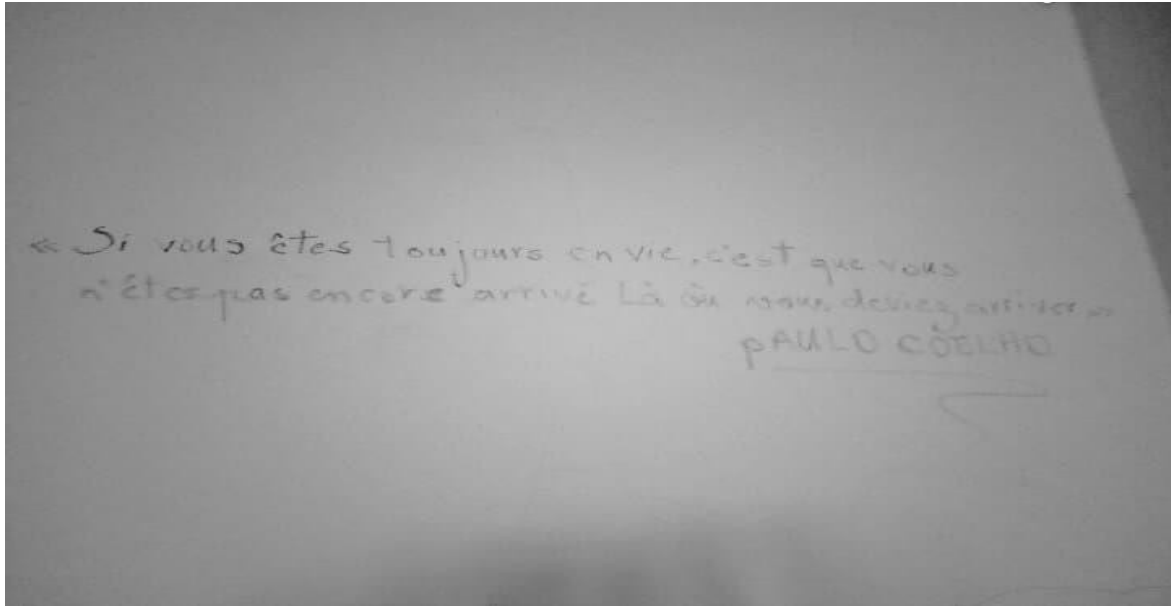 « Si vous êtes toujours en vie, c'est que vous
n'êtes pas encore arrivé Là où vous deviez arriver »
pAULO COELHO